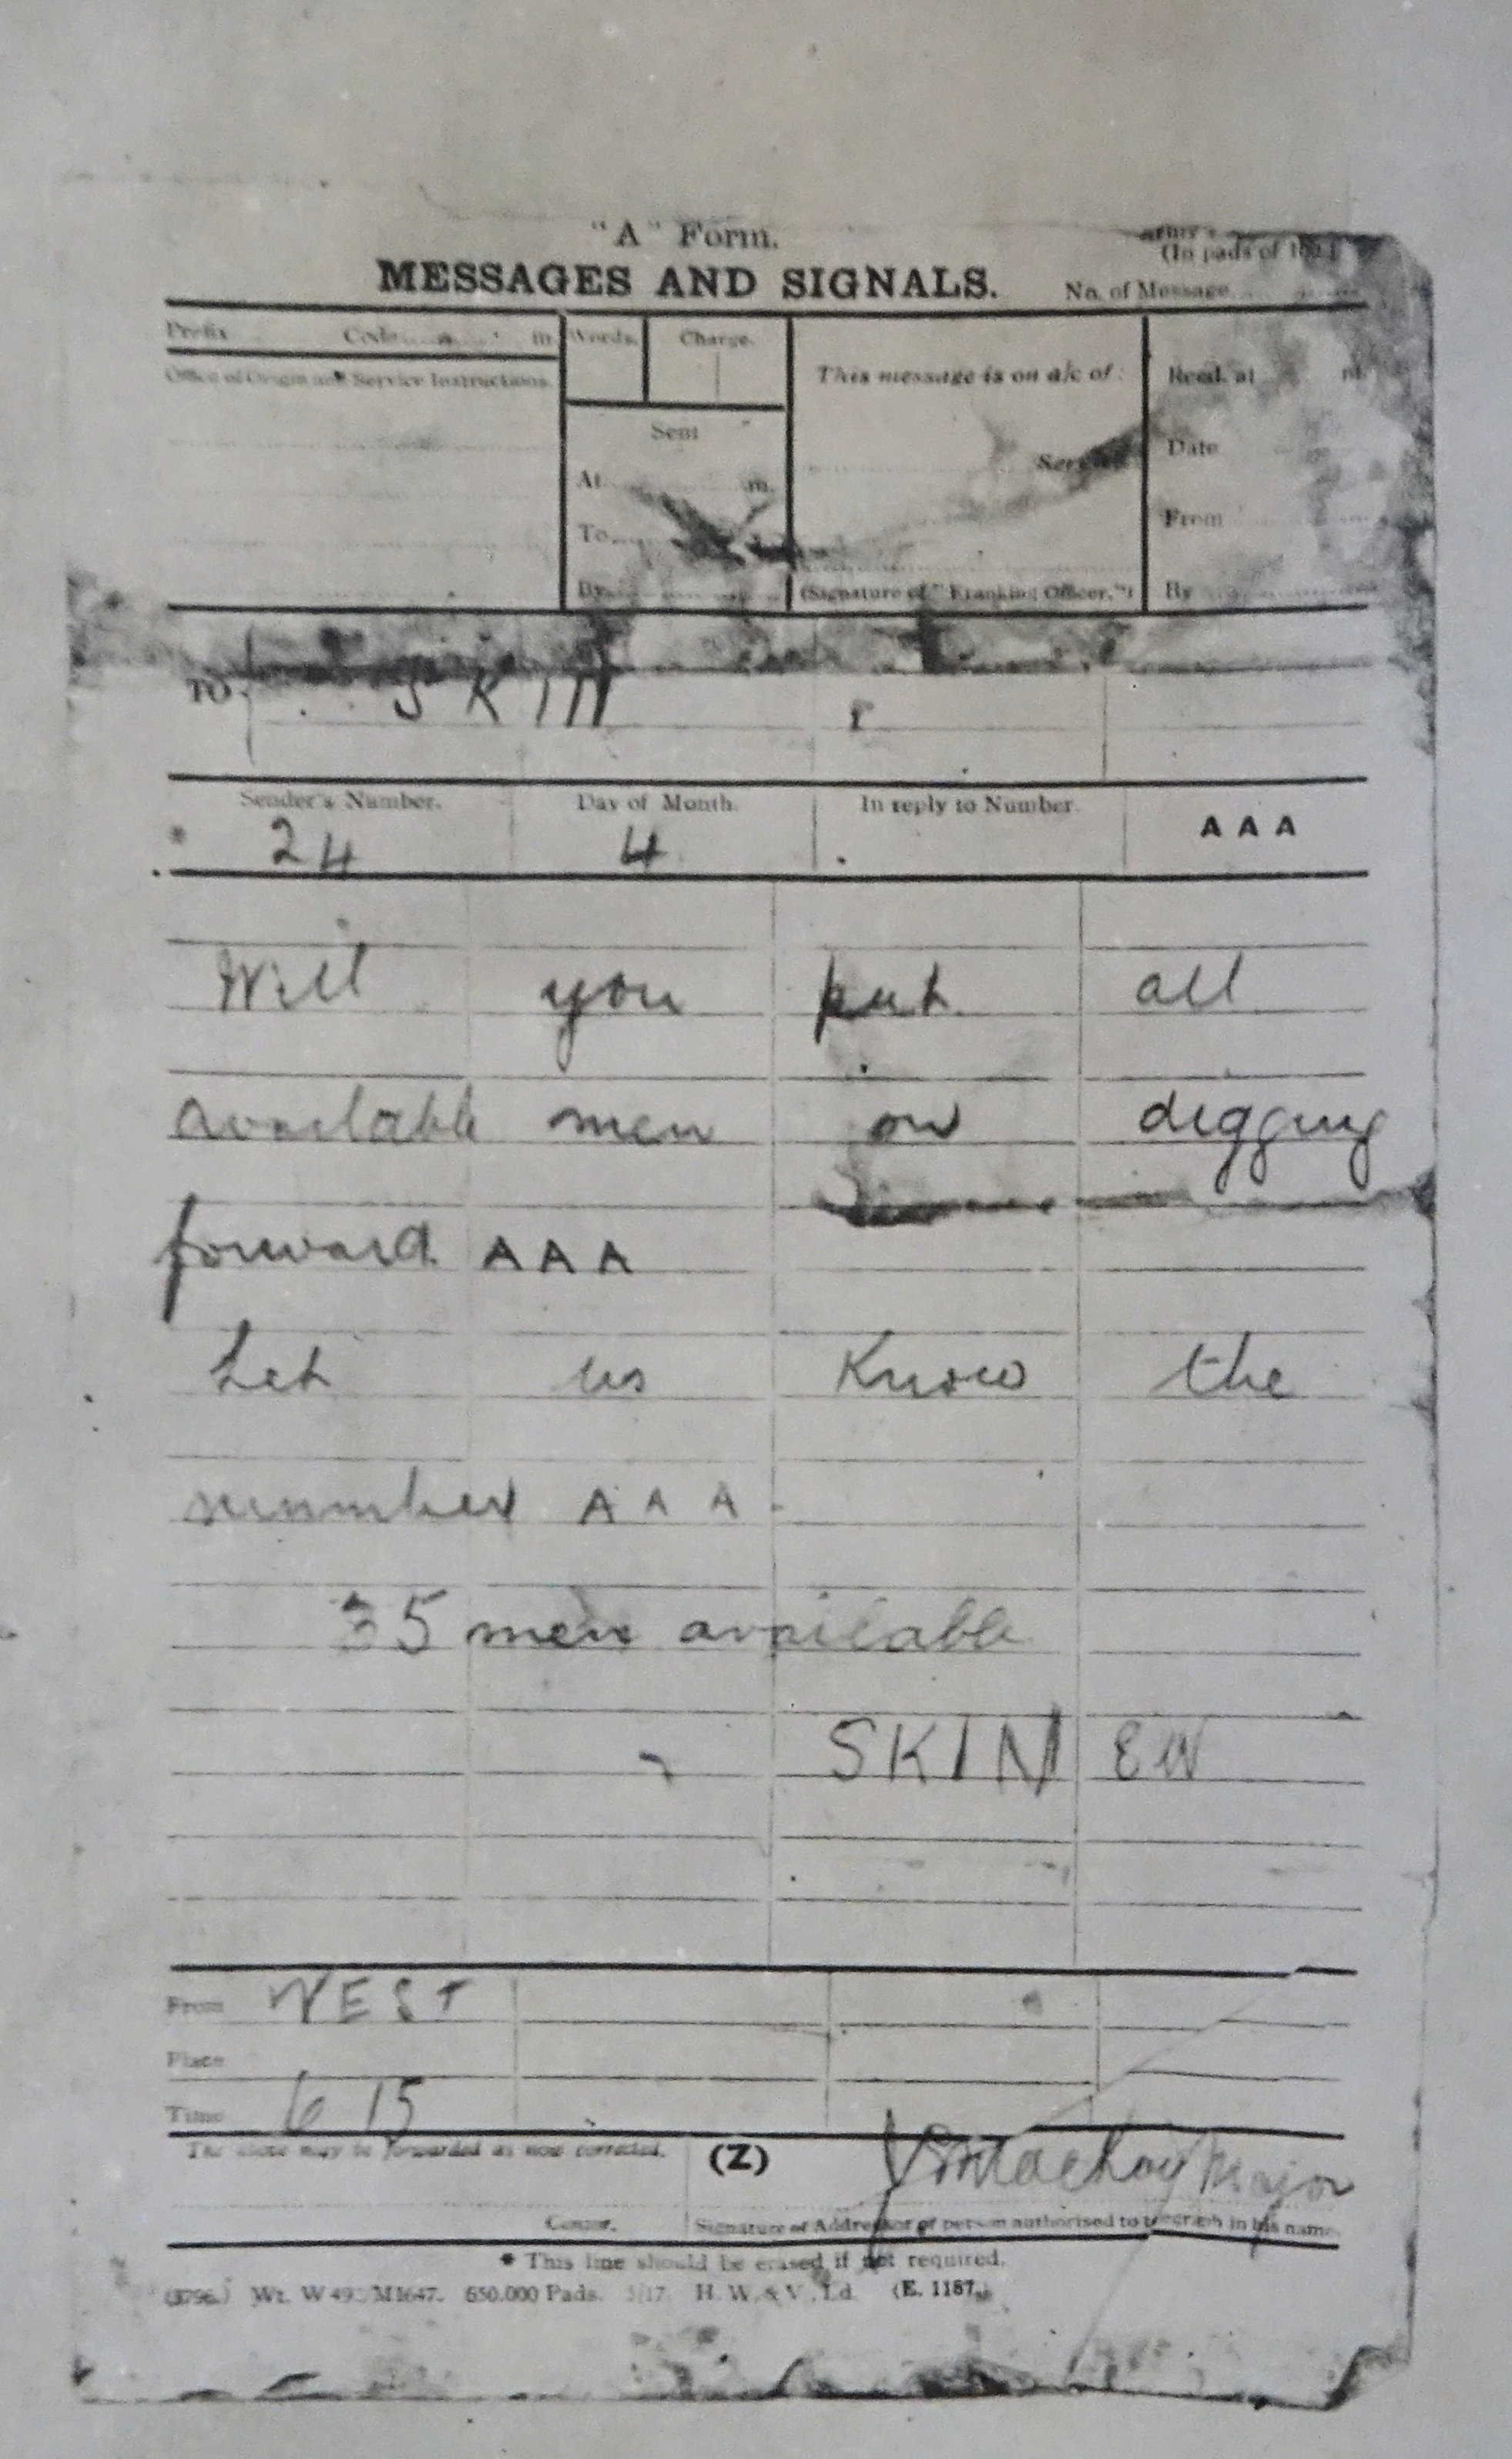 "A" Form.
MESSAGES AND SIGNALS.
(In pads of 100.)
No. of Message
Prefix Code m. Words. Charge.
This message is on a/c of:
Recd. at m.
Office of Origin and Service Instructions.
Sent
At m.
Service
Date
To
From
By
(Signature of "Franking Officer.")
By
TO SKIN
Sender's Number. Day of Month. In reply to Number. AAA
* 24 4
Will you put all
available men on digging
forward AAA
Let us know the
number AAA
35 men available
SKIN EW
From WEST
Place
Time 6 15
The above may be forwarded as now corrected. (Z)
Major
Censor. Signature of Addressor or person authorised to telegraph in his name.
* This line should be erased if not required.
(3796.) Wt. W 492 M1647. 650,000 Pads. 5/17. H. W. & V. Ld. (E. 1187.)